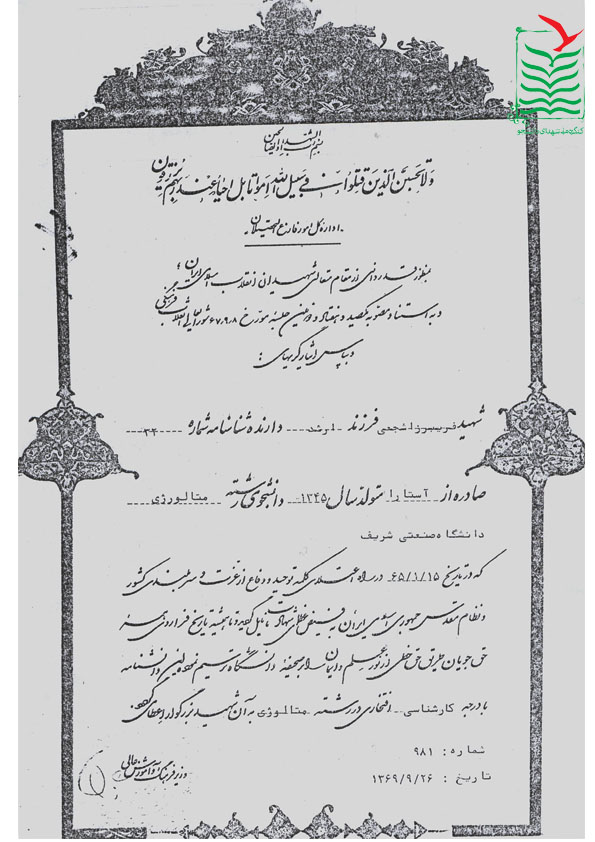 بسم الله الرحمن الرحیم
ولا تحسبن الذین قتلوا فی سبیل الله امواتا بل احیاء عند ربهم یرزقون
اداره کل امور فارغ التحصیلان
بمنظور قدردانی از مقام متعالی شهیدان انقلاب اسلامی ایران
و به استناد مصوبه یکصد و هفتاد و نهمین جلسه مورخ ۶۷٫۹٫۸ شورایعالی انقلاب فرهنگی
و بپاس ایثارگریهای :
شهید فریبرز اشجعی فرزند ارشد دارنده شناسنامه شماره ۳۴
صادره از آستارا متولد سال ۱۳۴۵ دانشجوی رشته متالورژی
دانشگاه صنعتی شریف
که در تاریخ ۶۵/۱/۱۵ در راه اعتلای کلمه توحید و دفاع از عزت و سربلندی کشور
و نظام مقدس جمهوری اسلامی ایران به فیض عظمای شهادت نایل گردید و تا همیشه تاریخ فرا روی همه
حق جویان طریق حق خطی از نور علم و ایمان را بر صحیفه دانشگاه ترسیم نمود این دانشنامه
با درجه کارشناسی افتخاری در رشته متالورژی به آن شهید بزرگوار اعطا می گردد
شماره : ۹۸۱
تاریخ : ۱۳۶۹/۹/۲۶
وزیر فرهنگ و آموزش عالی